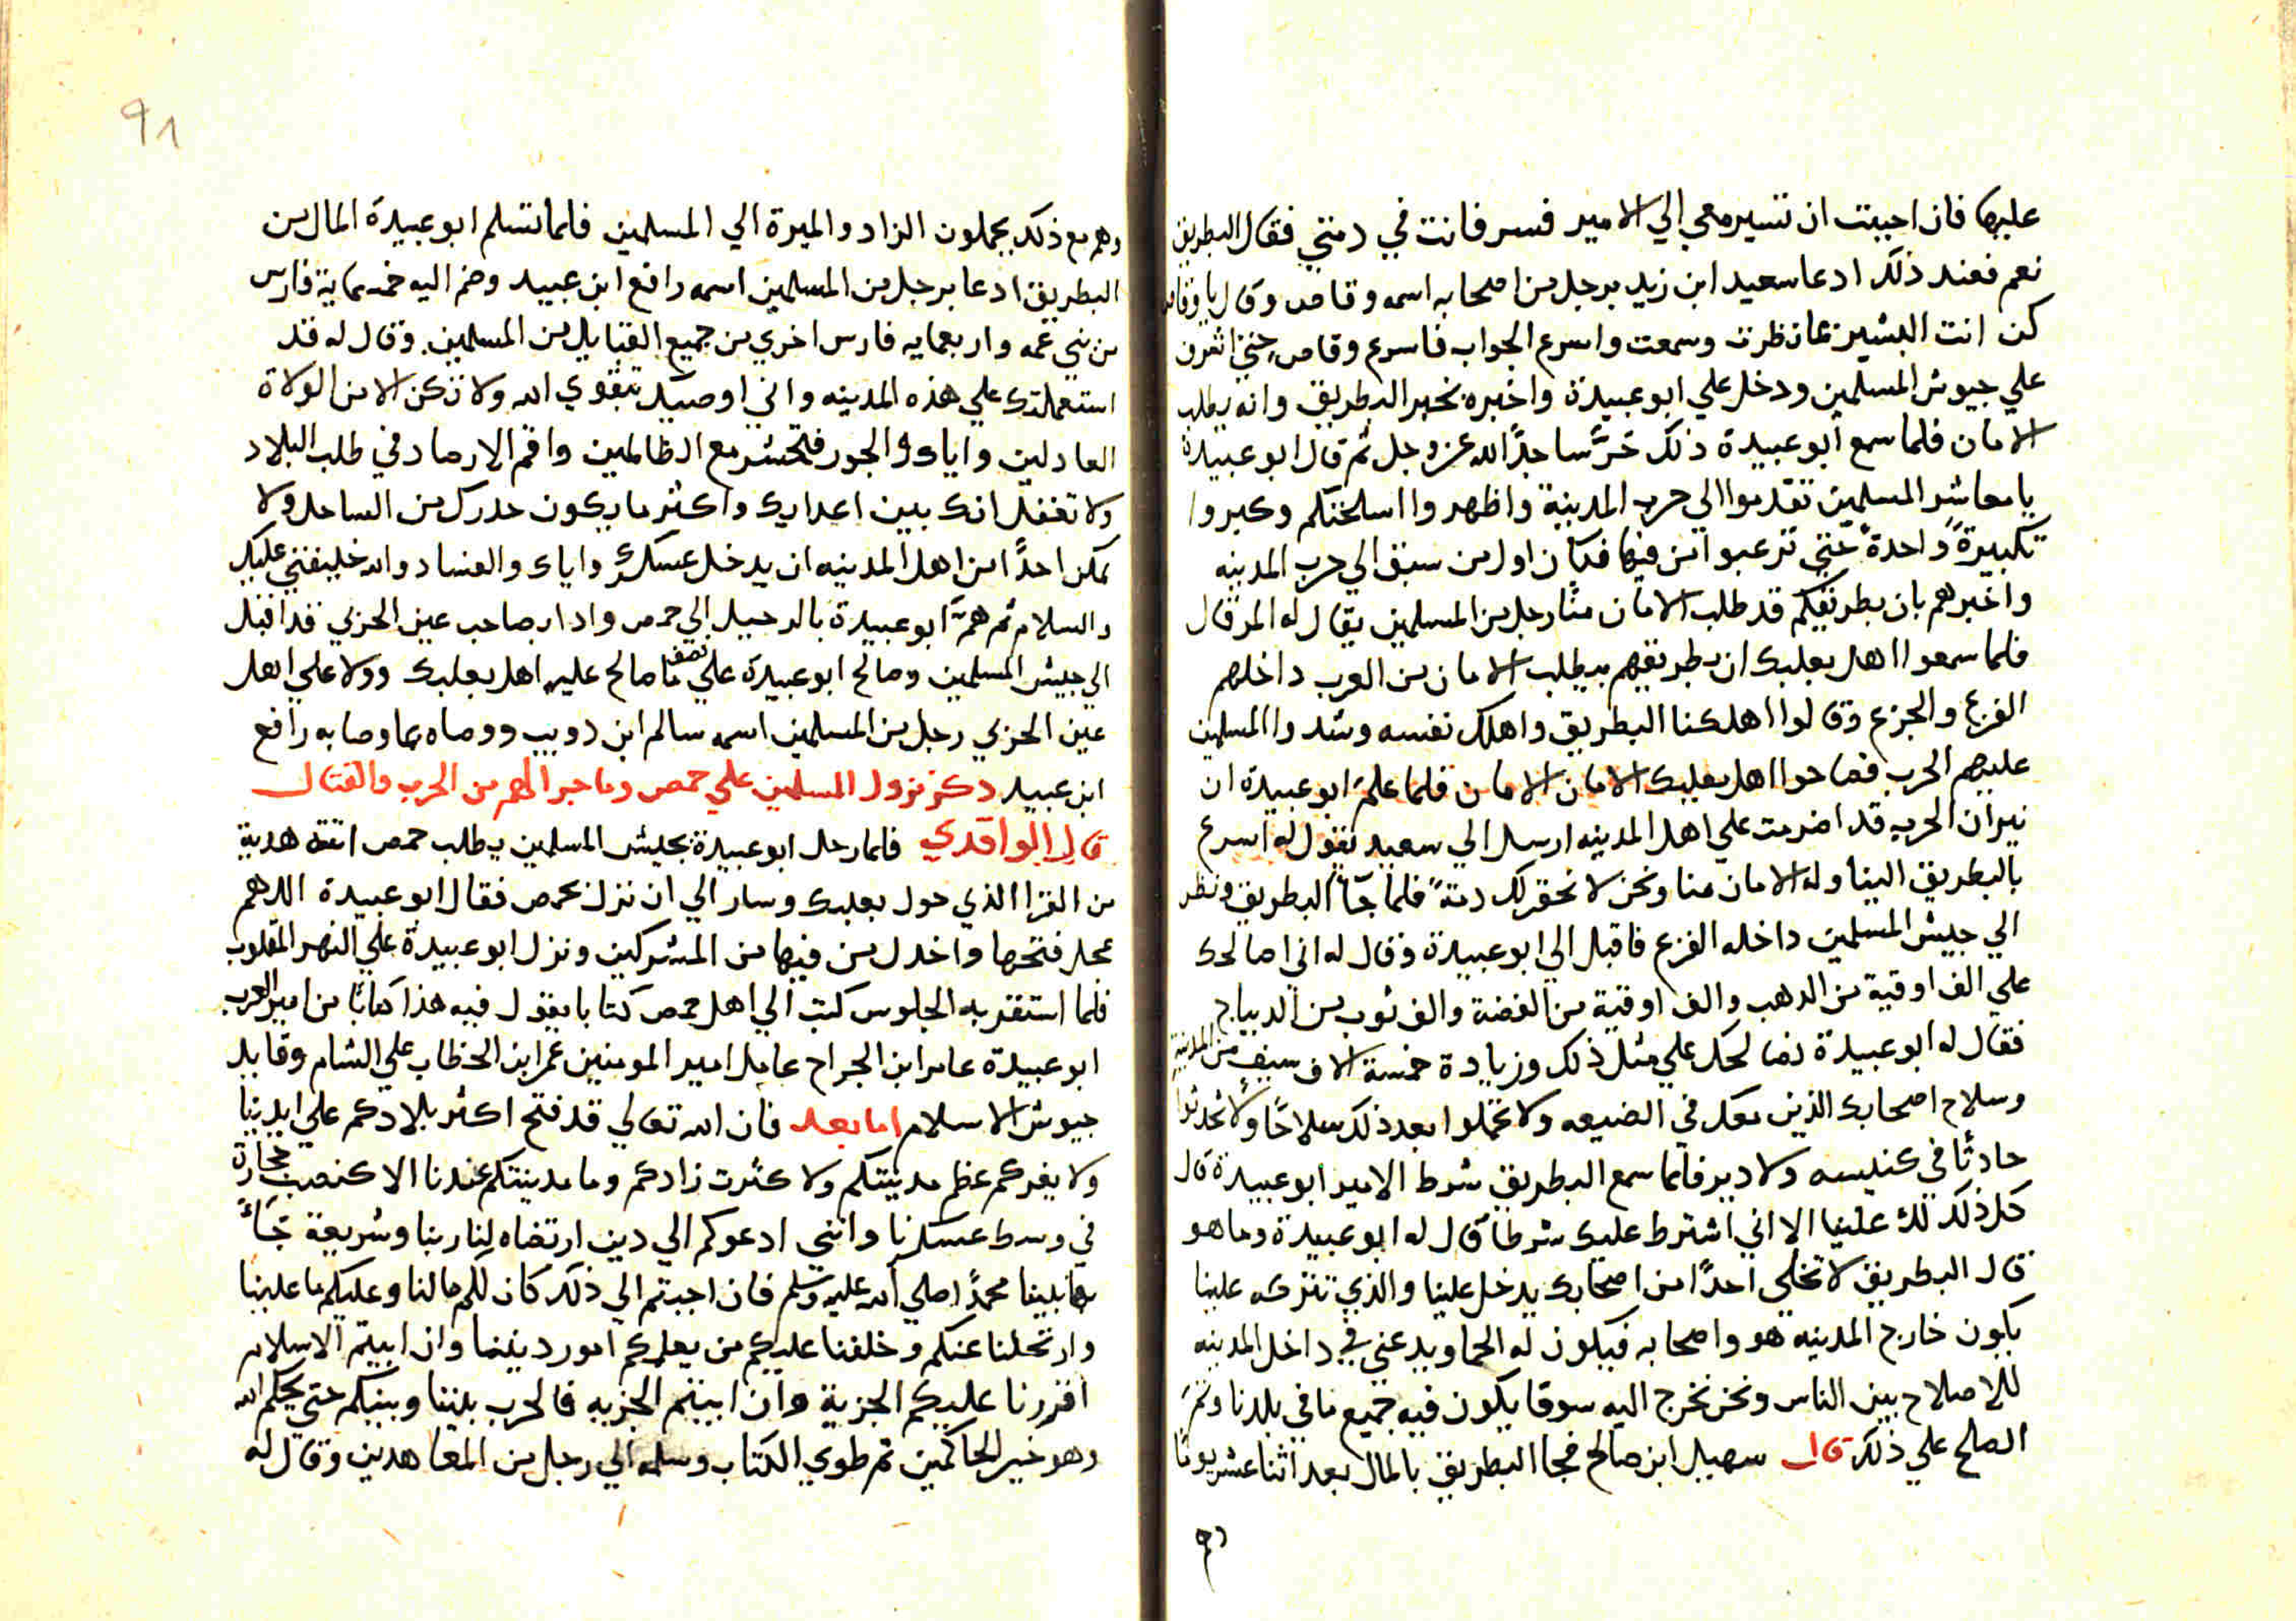 عليها فان اجبت ان تسير معي الي الامير فسر فانت في ذمتي فقال البطريق
نعم فعند ذلك ادعا سعيد ابن زيد برجل من اصحابه اسمه وقاص وقال يا وقاص
كن انت البشير بما نظرت وسمعت واسرع الجواب فاسرع وقاص حتي اشرف
علي جيوش المسلمين ودخل علي ابو عبيدة واخبره بخبر البطريق وانه يطلب
الامان فلما سمع ابو عبيدة ذلك خرَّ ساجدًا لله عز وجل ثم قال ابو عبيدة
يا معاشر المسلمين تقدموا الي حرب المدينة واظهروا اسلحتكم وكبروا
تكبيرةً واحدةً حتي ترعبوا من فيها فكان اول من سبق الي حرب المدينه
واخبرهم بان بطريقكم قد طلب الامان منّا رجل من المسلمين يقال له المرقال
فلما سمعوا اهل بعلبك ان بطريقهم يطلب الامان من العرب داخلهم
الفزع والجزع وقالوا اهلكنا البطريق واهلك نفسه وشدوا المسلمين
عليهم الحرب فصاحوا اهل بعلبك الامان الامان فلما علم ابو عبيدة ان
نيران الحرب قد اضرمت علي اهل المدينه ارسل الي سعيد يقول له اسرع
بالبطريق الينا وله الامان منا ونحن لا نحقر لك ذمةً فلما جآ البطريق ونظر
الي جيش المسلمين داخله الفزع فاقبل الي ابو عبيدة وقال له اني اصالحك
علي الف اوقية من الدهب والف اوقية من الفضة والف ثوب من الديباج
فقال له ابو عبيدة نصالحك علي مثل ذلك وزيادة خمسة الاف سيف من المدينة
وسلاح اصحابك الذين معك في الضيعه ولا تحملوا بعد ذلك سلاحًا ولا تحدثوا
حادثًا في كنيسه ولا دير فلما سمع البطريق شرط الامير ابو عبيدة قال
كل ذلك لك علينا الا اني اشترط عليك شرطا قال له ابو عبيدة وما هو
قال البطريق لا تخلي احدًا من اصحابك يدخل علينا والذي تتركه علينا
يكون خارج المدينه هو واصحابه فيكون له الحما ويدعني في داخل المدينه
للاصلاح بين الناس ونحن نخرج اليه سوقا يكون فيه جميع ما في بلدنا وتمَ
الصلح علي ذلك قال سهيل ابن صالح فجا البطريق بالمال بعد اثنا عشر يومًا
91
وهم مع ذلك يحملون الزاد والميرة الي المسلمين فلما تسلم ابو عبيدة المال من
البطريق ادعا برجل من المسلمين اسمه رافع ابن عبيد وضم اليه خمسماية فارس
من بني عمه واربعمايه فارس اخري من جميع القبايل من المسلمين وقال له قد
استعملتك علي هذه المدينه واني اوصيك بتقوي الله ولا تكن الا من الولاة
العادلين واياك والجور فتحشر مع الظالمين واقم الارصاد في طلب البلاد
ولا تغفل انك بين اعدايك واكثر ما يكون حدرك من الساحل ولا
تمكن احدًا من اهل المدينه ان يدخل عسكرك واياك والفساد والله خليفتي عليك
والسلام ثم همَّ ابو عبيدة بالرحيل الي حمص واذا بصاحب عين الحزبي قد اقبل
الي جيش المسلمين وصالح ابو عبيدة علي نصف ما صالح عليه اهل بعلبك وولا علي اهل
عين الحزبي رجل من المسلمين اسمه سالم ابن دويب ووصاه بما وصا به رافع
ابن عبيد دكر نزول المسلمين علي حمص وما جرا لهم من الحرب والقتال
قال الواقدي فلما رحل ابو عبيدة بجيش المسلمين يطلب حمص اتته هدية
من القرا الذي حول بعلبك وسار الي ان نزل بحمص فقال ابو عبيدة اللهم
عجل فتحها واخدل من فيها من المشركين ونزل ابو عبيدة علي النهر المقلوب
فلما استقر به الجلوس كتب الي اهل حمص كتابا يقول فيه هذا كتابًا من امير العرب
ابو عبيدة عامر ابن الجراح عامل امير المومنين عمر ابن الخطاب علي الشام وقايد
جيوش الاسلام اما بعد فان الله تعالي قد فتح اكثر بلادكم علي ايدينا
ولا يغركم عظم مدينتكم ولا كثرت زادكم وما مدينتكم عندنا الا كنصب حجارة
في وسط عسكرنا وانني ادعوكم الي دين ارتضاه لنا ربنا وشريعة جَآءَ
بها نبينا محمدًا صلي الله عليه وسلم فان اجبتم الي ذلك كان لكم ما لنا وعليكم ما علينا
وارتحلنا عنكم وخلفنا عليكم من يعلمكم امور ديننا وان ابيتم الاسلام
اقررنا عليكم الجزية وان ابيتم الجزيه فالحرب بيننا وبينكم حتي يحكم الله
وهو خير الحاكمين ثم طوي الكتاب وسلمه الي رجل من المعاهدين وقال له